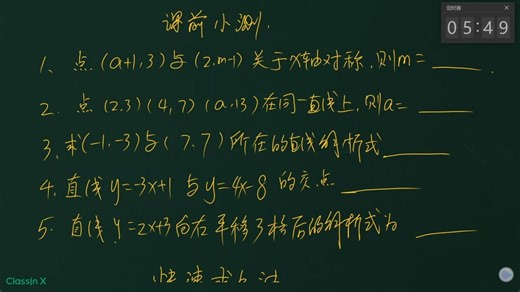 定时器
05:49
课前小测.
1、点(a+1,3)与(2,m-1)关于x轴对称,则m=____.
2. 点(2,3)(4,7)(a,13)在同一直线上,则a=____
3、求(-1,-3)与(7,7)所在的直线解析式____
4.直线y=-3x+1与y=4x-8的交点____
5. 直线y=2x+3向右平移3格后的解析式为____
快速
ClassIn X